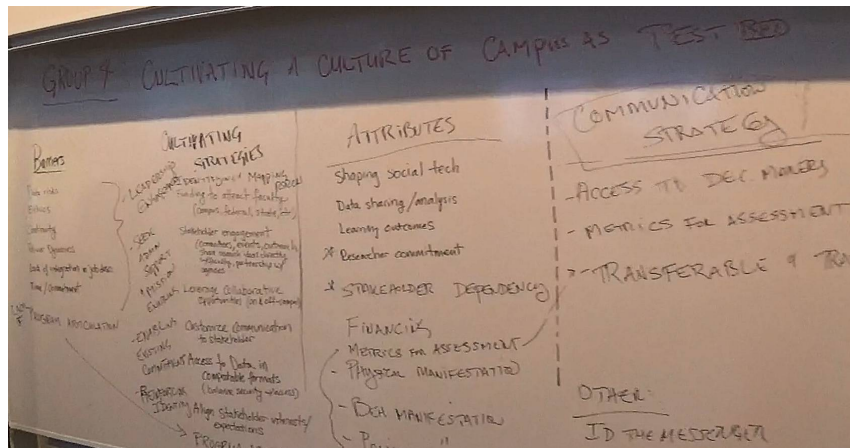 GROUP 4 CULTIVATING A CULTURE OF CAMPUS AS TEST BED
Barriers
Ethics
Continuity
Power Dynamics
Lack of integration in job desc
Time / Commitment
PROGRAM ARTICULATION
CULTIVATING
STRATEGIES
- LEADERSHIP
MAPPING
Funding to attract faculty
(campus, federal, state, etc)
- SEEK
ADMIN
SUPPORT
Stakeholder engagement
(committees, events, outreach,
partnership w/
agencies
Leverage collaborative
opportunities (on & off-campus)
- ENABLING
EXISTING
COMMITMENTS
Customize communication
to stakeholder
Access to Data in
compatable formats
(balance security w/access)
- REINFORCING
IDENTITY
Align stakeholder interests/
expectations
ATTRIBUTES
Shaping social tech
Data sharing/analysis
Learning outcomes
* Researcher commitment
* STAKEHOLDER DEPENDENCY
FINANCING
- METRICS FOR ASSESSMENT
- PHYSICAL MANIFESTATION
- BEH MANIFESTATION
COMMUNICATION
STRATEGY
- ACCESS TO DEC. MAKERS
- METRICS FOR ASSESSMENT
- TRANSFERABLE & TRA
OTHER:
ID THE MESSENGER